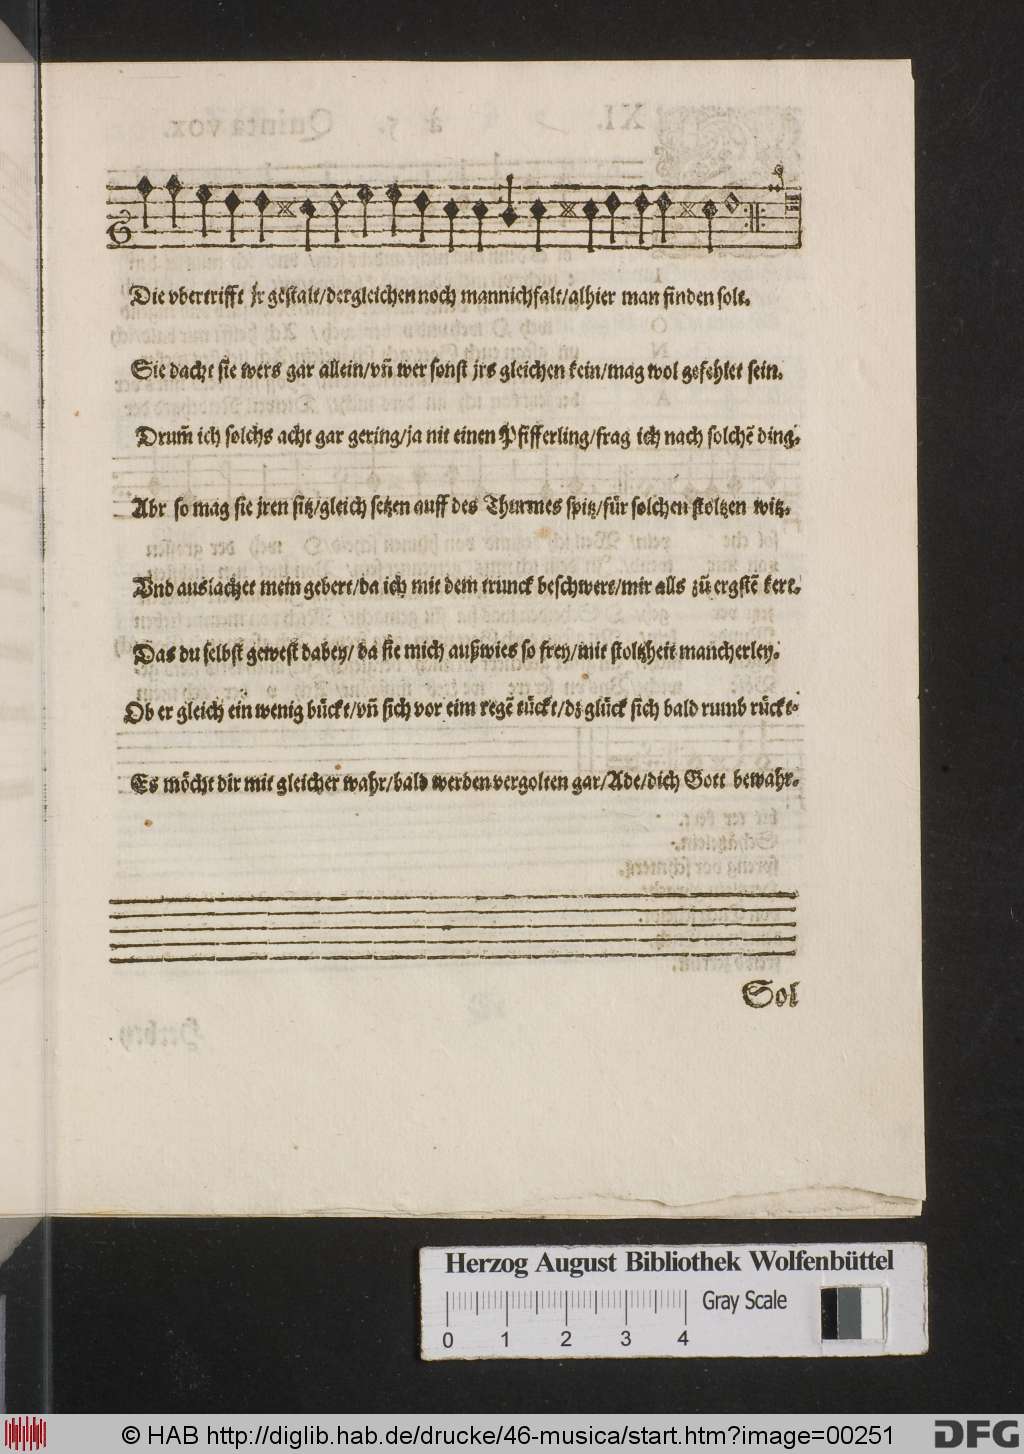 Die vbertrifft jr gestalt/dergleichen noch mannichfalt/alhier man finden solt.
Sie dacht sie wers gar allein/vñ wer sonst jrs gleichen kein/mag wol gefehlet sein.
Drum̃ ich solchs acht gar gering/ja nit einen Pfifferling/frag ich nach solchẽ ding.
Abr so mag sie jren sitz/gleich setzen auff des Thurmes spitz/für solchen stoltzen witz.
Vnd auslachet mein gebert/da ich mit dem trunck beschwert/mir alls zũ ergstẽ kert.
Das du selbst gewest dabey/ da sie mich außwies so frey/mit stoltzheit mancherley.
Ob er gleich ein wenig bückt/vñ sich vor eim regẽ tückt/dz glück sich bald rumb rückt.
Es möcht dir mit gleicher wahr/bald werden vergolten gar/Ade/dich Gott bewahr.
Sol
Herzog August Bibliothek Wolfenbüttel
Gray Scale
0 1 2 3 4
© HAB http://diglib.hab.de/drucke/46-musica/start.htm?image=00251
DFG